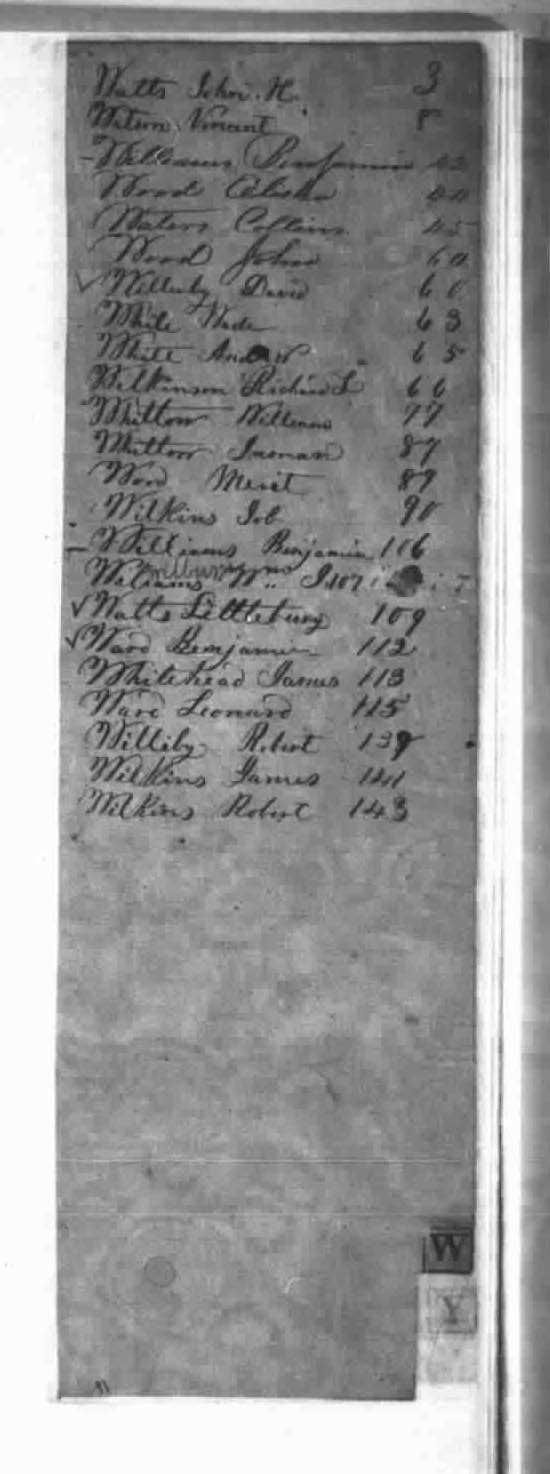 Watts John. H. 3
Watson Vincent
Williams Benjamin
Wood Elisha
Waters Collins 45
Wood John 60
Willeby David 60
White Wade 63
White Andrew 65
Wilkinson Richard L 66
Whitlow William 77
Whitlow Inman 87
Word Merit 89
Wilkins Job 90
Williams Benjamin 106
Wm. J 107
Watts Littlebury 109
Ward Benjamin 112
Whitehead James 113
Ward Leonard 115
Williby Robert 139
Wilkins James 141
Wilkins Robert 143
W
Y